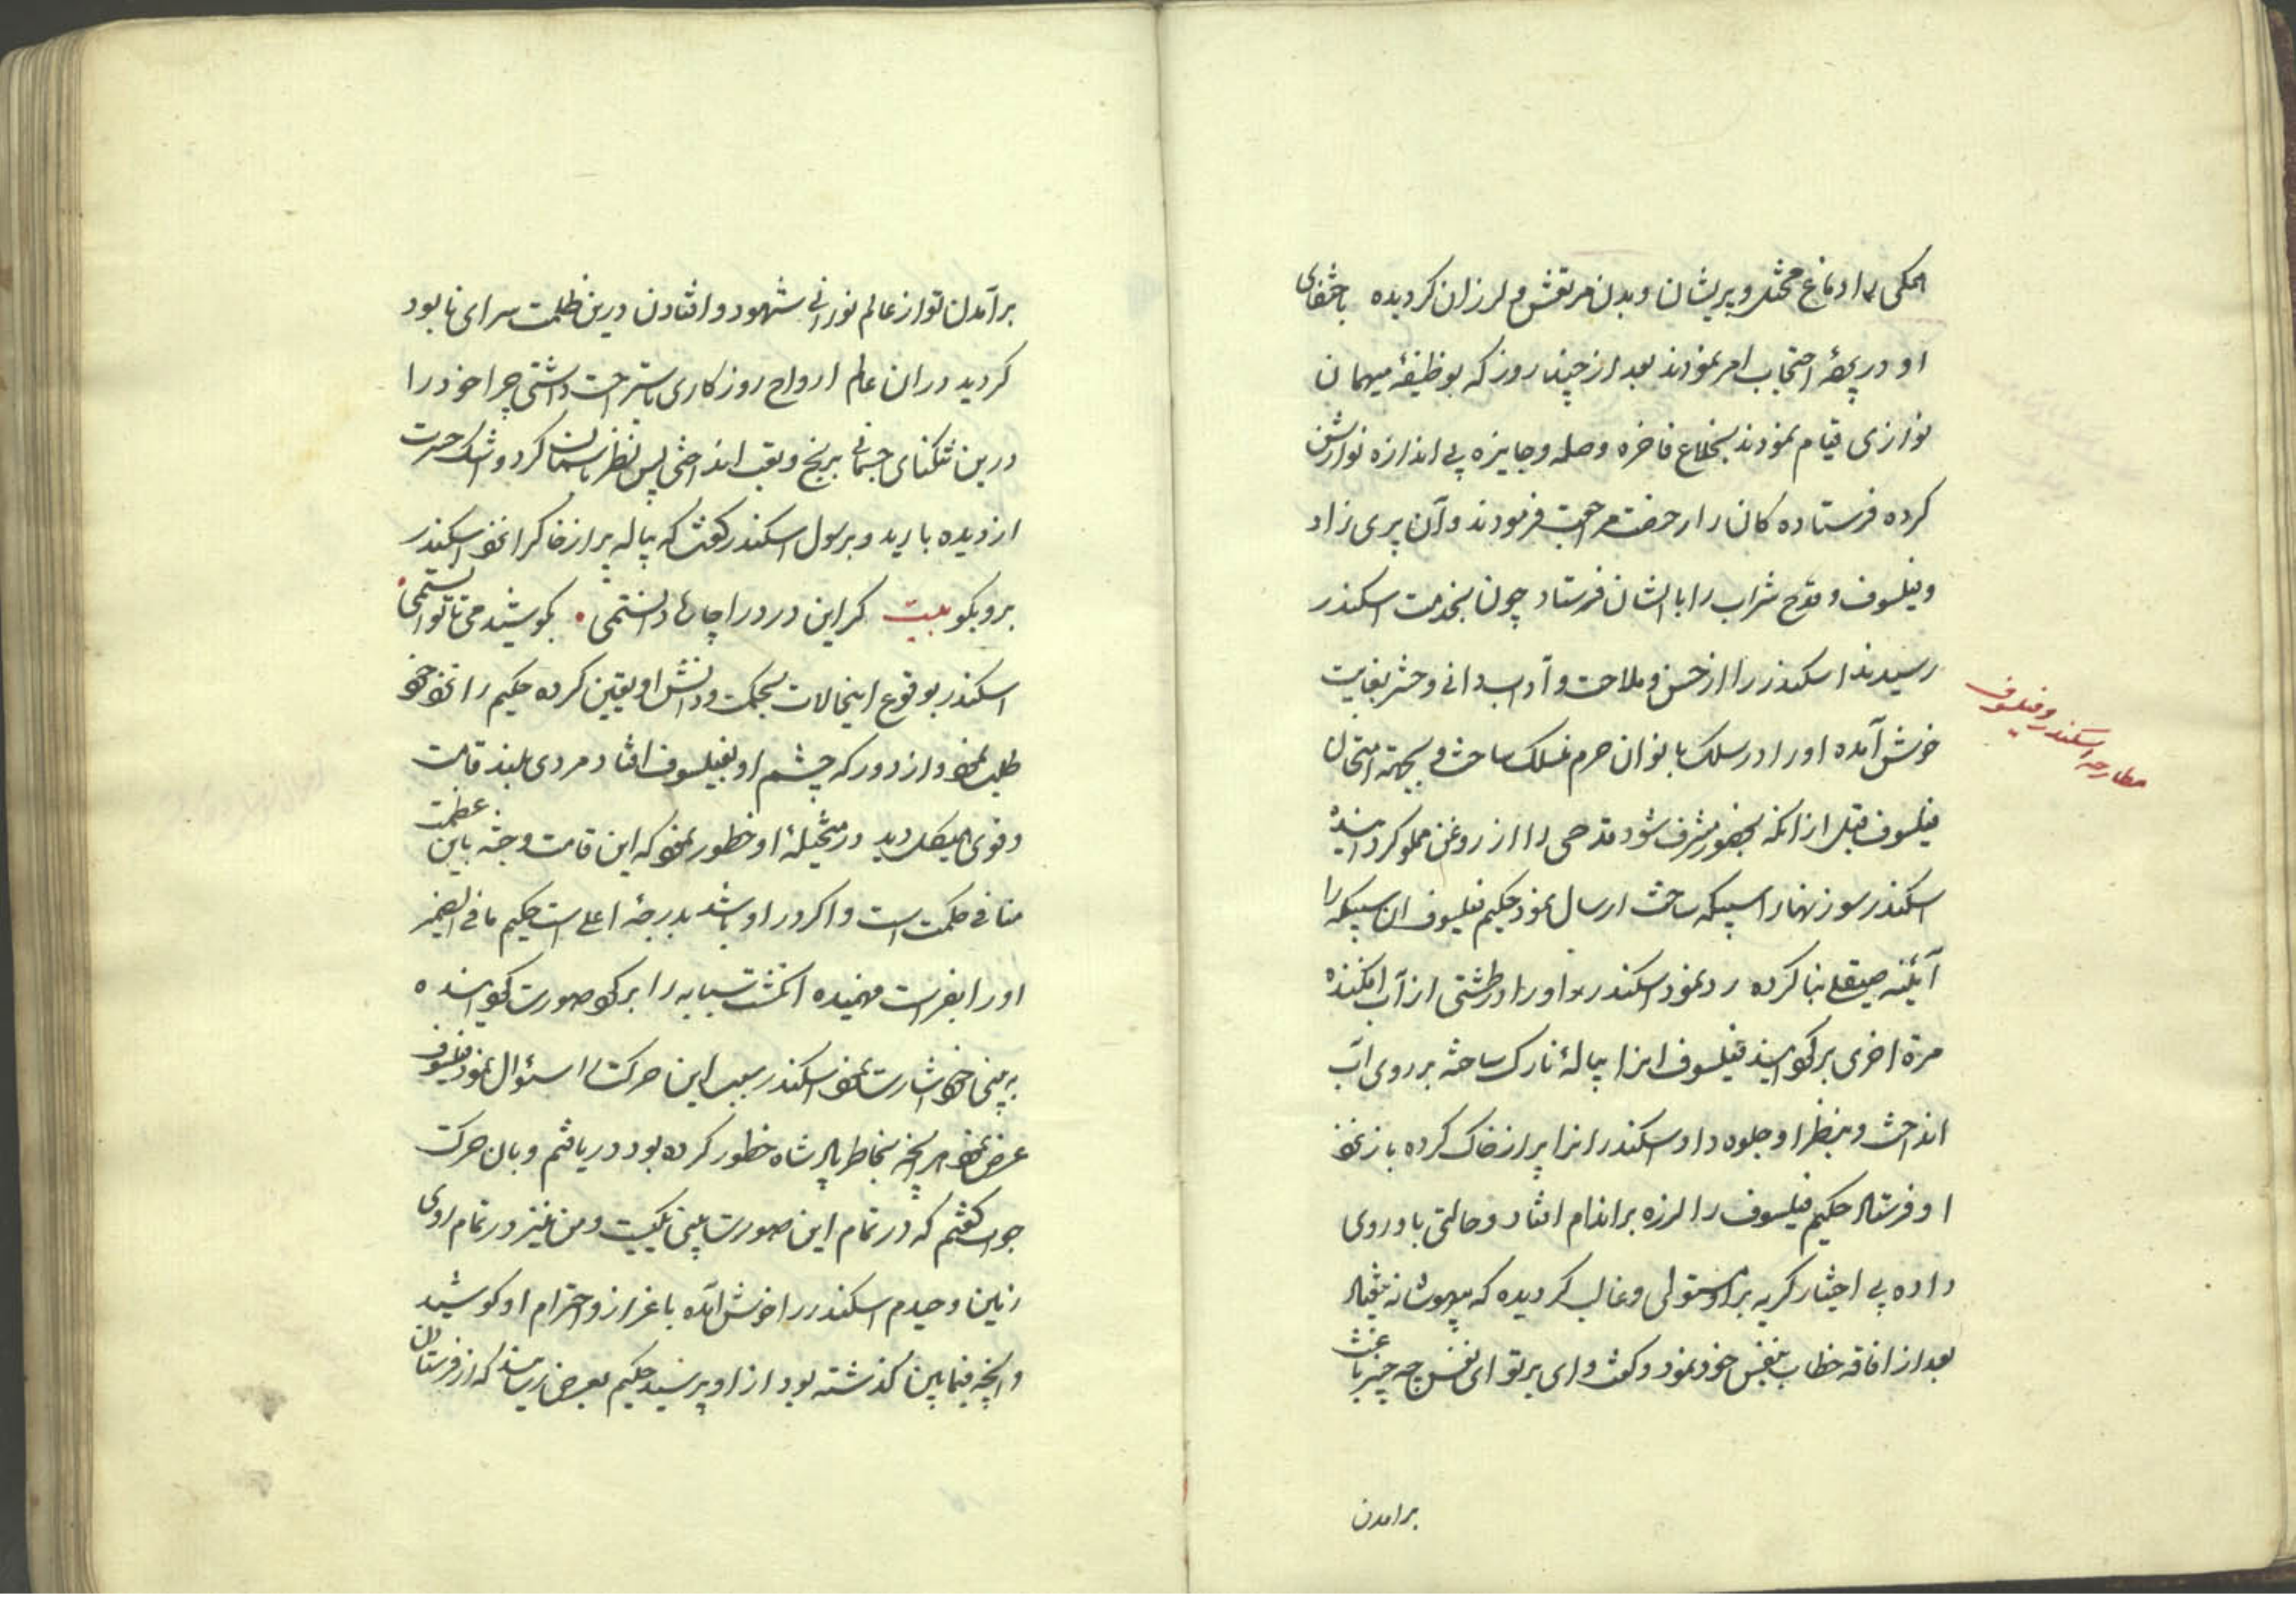 همکی را دماغ مختل و پریشان و بدن مرتعش و لرزان کردیده باختفای
او در پردهٔ احتجاب امر نمودند بعد از چند روز که بوظیفهٔ میهمان
نوازی قیام نمودند بخلاع فاخره وصله وجایزه بی اندازه نوازش
کرده فرستاده کان را رخصت مراجعت فرمودند و آن پری زاد
و فیلسوف و قدح شراب را با ایشان فرستاد چون بخدمت اسکندر
رسیدند اسکندر را از حسن و ملاحت و آداب دانی دختر بغایت
خوش آمده او را در سلک بانوان حرم منسلک ساخت و بجهته امتحان
فیلسوف قبل از انکه بحضور مشرف شود قدحی را از روغن مملو کردانیده
اسکندر سوزنهارا سبیکه ساخته ارسال نمود حکیم فیلسوف ان سبیکه را
آیئنه صیقلی بنا کرده رد نمود اسکندر او را در طشتی از آب افکنده
مرة اخری برکردانید فیلسوف انرا پیالهٔ نازک ساخته بر روی اب
انداخت و بنظر او جلوه داد اسکندر انرا پر از خاک کرده باز نزد
او فرستاد حکیم فیلسوف را لرزه بر اندام افتاد و حالتی باو روی
داده بی اختیار کریه بر او مستولی و غالب کردیده که بیهوشانه بیفتاد
بعد از افاقه خطاب بنفس خود نمود و کفت وای بر تو ای نفس چه چیز باعث
برامدن
مطارحه اسکندر و فیلسوف
برآمدن تو از عالم نورانی شهود و افتادن درین ظلمت سرای نابود
کردید در ان عالم ارواح روزکاری باستراحت داشتی چرا خود را
درین تنکنای جسمانی برنج و تعب انداختی پس نظر باسمان کرد و اشک حسرت
از دیده بارید و برسول اسکندر کفت که پیاله پر از خاک را نزد اسکندر
برو بکو بیت کر این درد را چاره دانستمی • بکوشیدمی تا توانستمی •
اسکندر بوقوع اینحالات بحکمت و دانش او یقین کرده حکیم را نزد خود
طلب نمود و از دور که چشم او بفیلسوف افتاد مردی بلند قامت
و قوی هیکل دید در متخیلهٔ او خطور نمود که این قامت وجثه باین عظمت
منافی حکمت است و اکر در او باشد بدرجهٔ اعلی است حکیم ما فی الضمیر
او را بفراست فهمیده انکشت سبابه را بر کرد صورت کردانیده
به بینی خود اشارت نمود اسکندر سبب این حرکت را سئوال نمود فیلسوف
عرض نمود هر انچه بخاطر پادشاه خطور کرده بود دریافتم و بان حرکت
جواب کفتم که در تمام این صورت بینی یکیست و من نیز در تمام روی
زمین وحیدم اسکندر را خوش آمده باعزاز و احترام او کوشید
وانچه فیمابین کذشته بود از او پرسید حکیم بعرض رسانید که از فرستادن